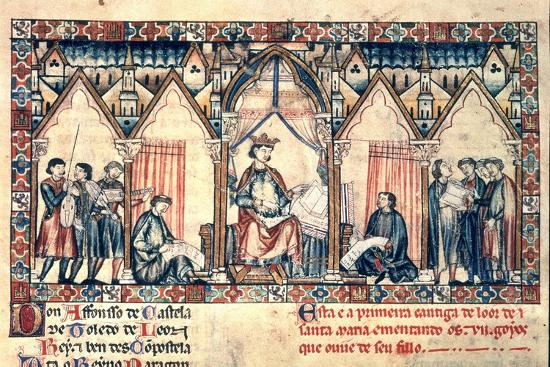 Don Affonsso de Castela
de Toledo de Leon
Rey e ben des Conpostela
ta o Reyno Daragon
Esta e a primeira cantiga de loor de
santa maria ementando os .vii. goyos
que ouue de seu fillo.